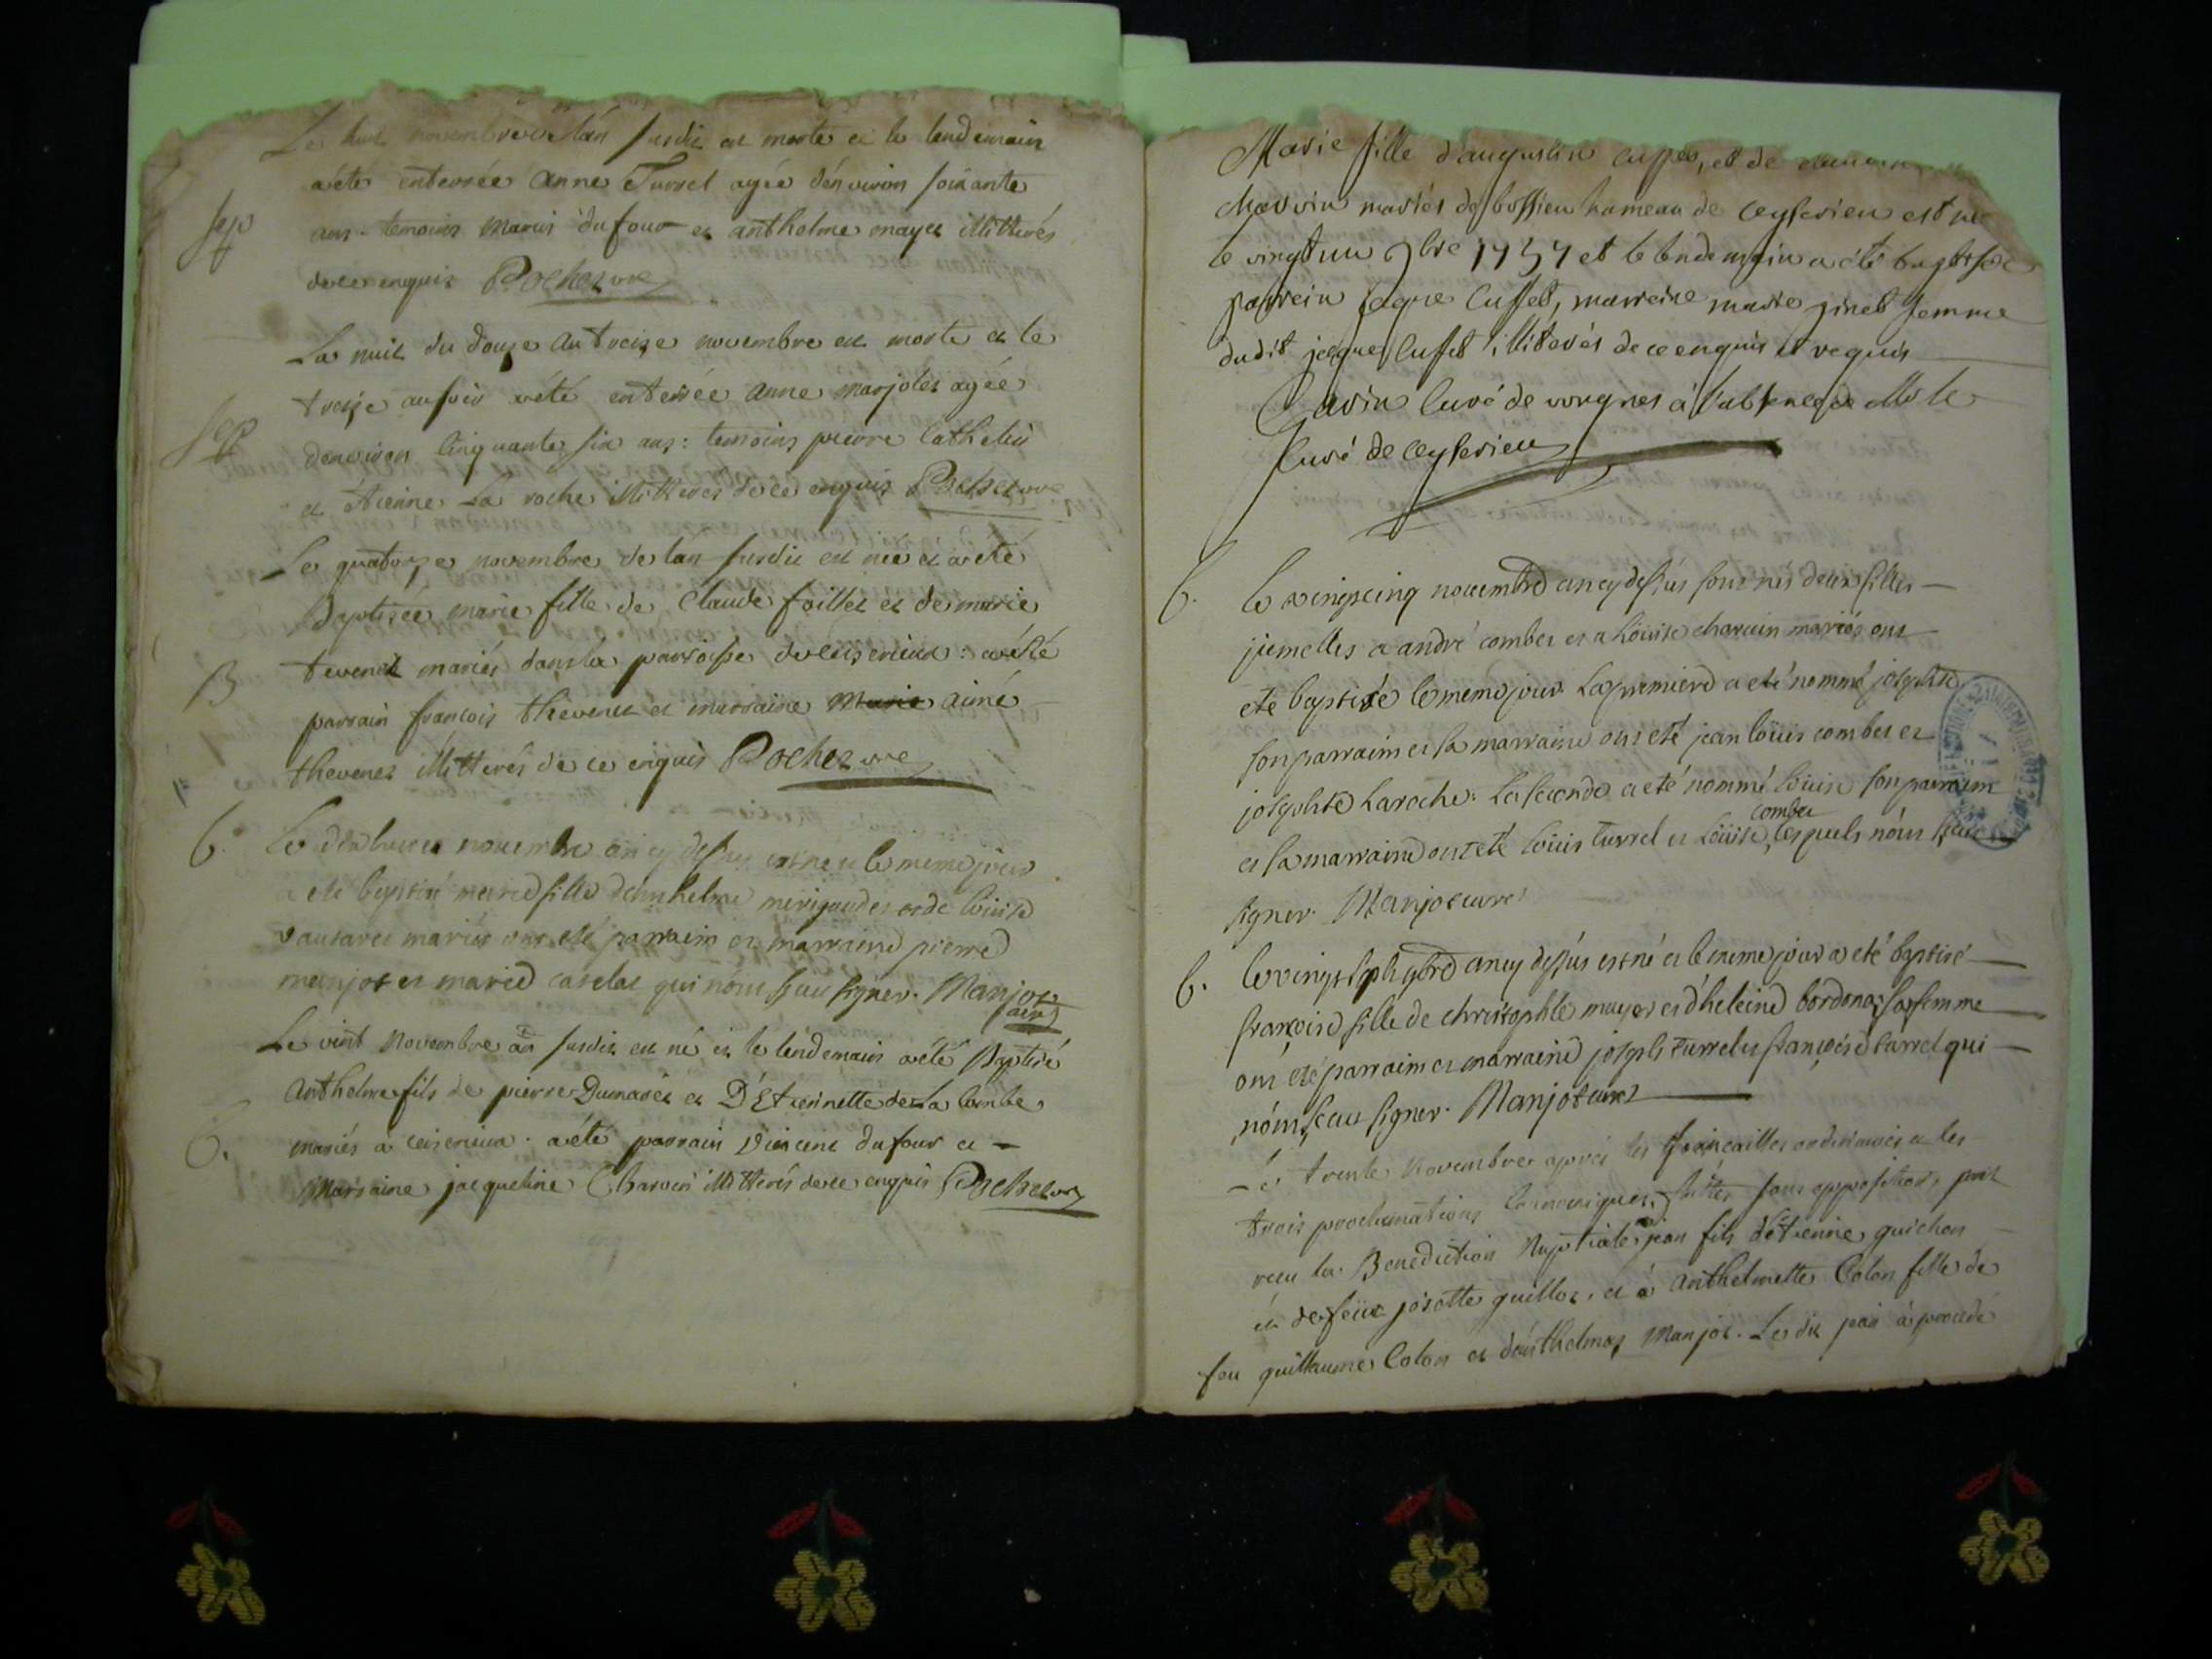 Le huit novembre de lan susdit est morte et le lendemain
a été enterrée anne Turrel agée dénviron soixante
Sep
ans. temoins marin dufour et anthelme mayet illitterés
de ce enquis Pochet curé
La nuit du douze au treize novembre est morte et le
treize au soir a été enterrée anne marjolet agée
Sep
denviron Cinquante six ans: temoins pierre Cathelin
et étienne La roche illitteres de ce enquis Pochet curé
Le quatorze novembre de lan susdit est née et a été
Baptisée marie fille de Claude foillet et de marie
B
tevenet mariés dans la parroisse de ceiserieux: a été
parrain francois thevenet et marraine marie aimé
thevenet illitterés de ce enquis Pochet curé
b.
Le dixhuict novembre an cy dessus est né et le meme jour
eté baptisé marie fille danthelme et de loüise
mariés ont eté parraim et marraine pierre
manjot et marie qui nónt sçeu signer. Manjot
curé
Le vint Novembre an susdit est né et le lendemain a été Baptisé
Anthelme fils de pierre Dumarêt et D'Etiennette de La Combe
B.
mariés a ceiserieux. a été parrain Vincent dufour et
Marraine jacqueline Charvin illitterés de ce enquis Pochet curé
Marie fille d'augustin cusset, et de
Charvin mariés de bossieu hameau de ceyserieu est née
le vingt un 9bre 1757 et le lendemain a été baptisée
parrein jaque Cusset, marreine marie ginet femme
dudit jaque Cusset illiterés de ce enquis et requis
Gavin Curé de vongnes à l'absence de Mr le
Curé de Ceyserieu
b.
le vingtcinq novembre an cy dessus sont nés deux filles
jumelles a andré combet et a loüise charvin mariés ont
eté baptisée le meme jour. La premiere a eté nommé josephte
son parraim et sa marraine ont eté jean loüis combet et
josephte Laroche. La seconde a eté nommé loüise son parraim
combet
et sa marraine ont eté loüis turrel et loüise, lesquels nónt sçeu
signer. Manjot curé
b.
le vingt sept 9bre an cy dessus est né et le meme jour a eté baptisé
francoise fille de christophle mayet et d'heleine bordonat sa femme
ont eté parraim et marraine joseph turrel et françoise turrel qui
nónt sçeu signer. Manjot curé
Le trente Novembre aprés les fiançailles ordinaires et les
trois proclamations Cannoniques faittes sans opposition, jai
reçu la Benediction Nuptiale jean fils d'étienne guichon
et de feüe josette guillot, et à anthelmette Colon fille de
feu guillaume Colon et danthelmaz Manjot. Le dit jean à procedé